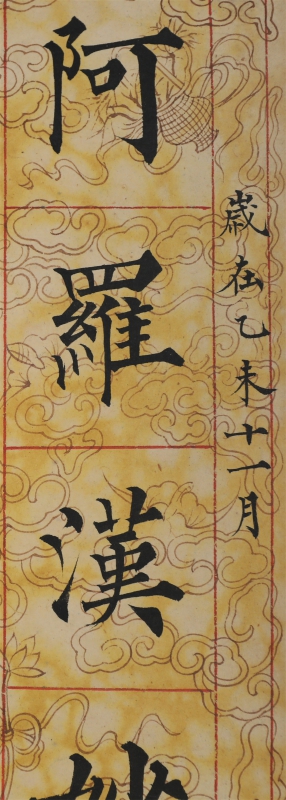 歳在乙未十一月
阿羅漢